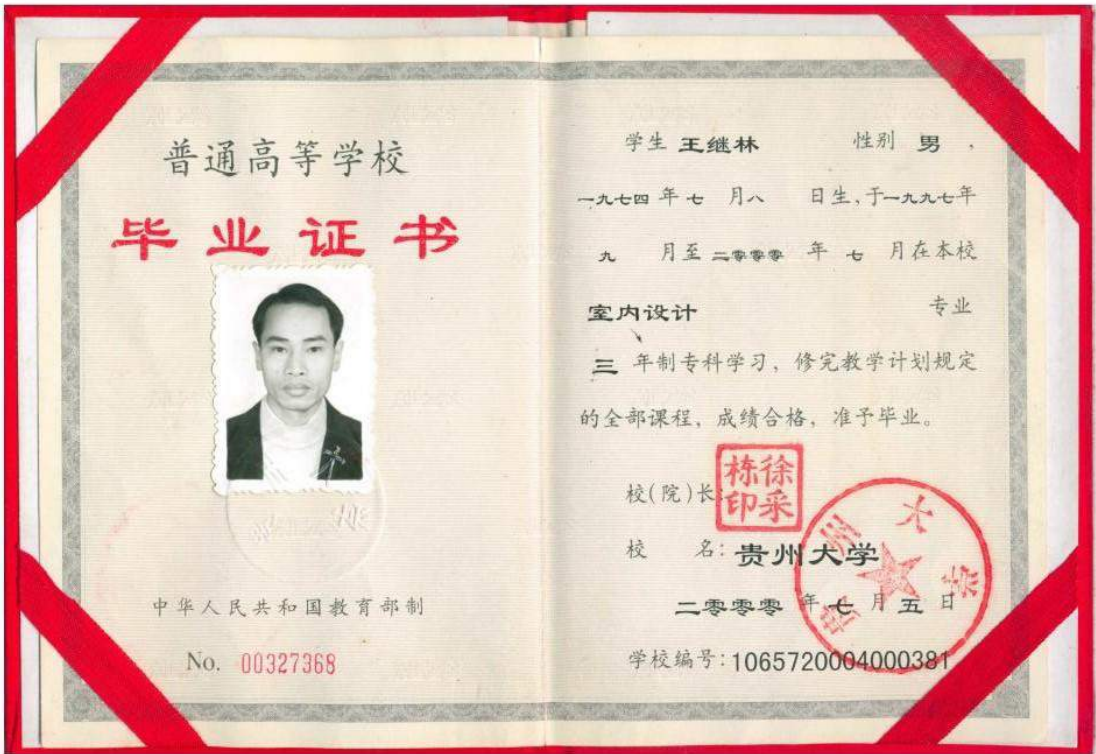 普通高等学校
毕业证书
中华人民共和国教育部制
No. 00327368
学生 王继林 性别 男，
一九七四 年 七 月 八 日生，于一九九七年
九 月至 二零零零 年 七 月在本校
室内设计 专业
三 年制专科学习，修完教学计划规定
的全部课程，成绩合格，准予毕业。
校(院)长：
徐采栋印
校 名：贵州大学
贵州大学
二零零零 年 七 月 五 日
学校编号：1065720004000381